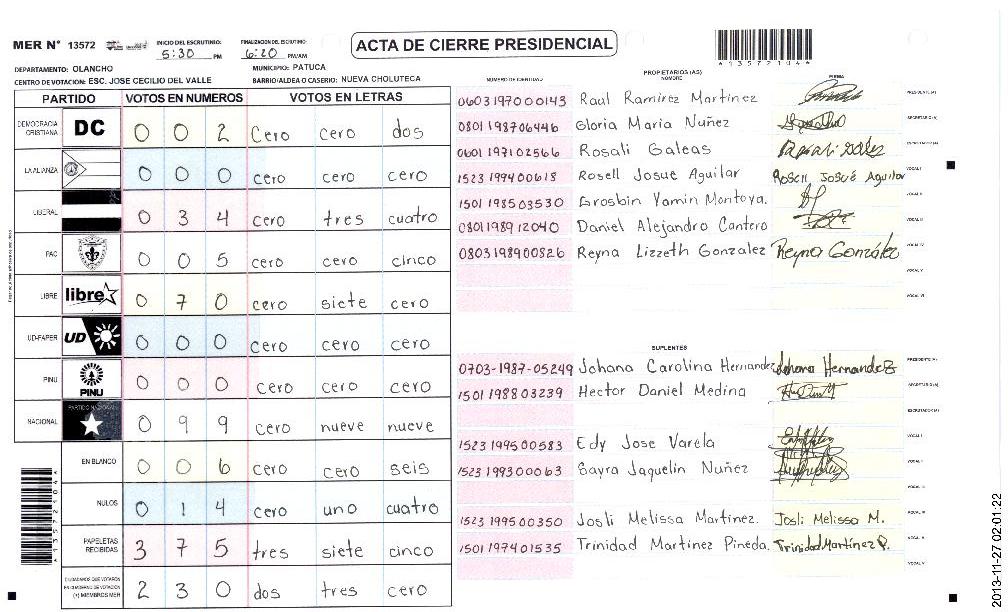 MER N° 13572
INICIO DEL ESCRUTINIO: 5:30 PM
FINALIZACION DEL ESCRUTINIO: 6:20 PM/AM.
ACTA DE CIERRE PRESIDENCIAL
DEPARTAMENTO: OLANCHO
MUNICIPIO: PATUCA
CENTRO DE VOTACION: ESC. JOSE CECILIO DEL VALLE
BARRIO/ALDEA O CASERIO: NUEVA CHOLUTECA
PARTIDO VOTOS EN NUMEROS VOTOS EN LETRAS
DEMOCRACIA CRISTIANA DC 0 0 2 Cero cero dos
LA ALIANZA 0 0 0 cero cero cero
LIBERAL 0 3 4 cero tres cuatro
PAC 0 0 5 cero cero cinco
LIBRE libre 0 7 0 cero siete cero
UD-FAPER UD 0 0 0 cero cero cero
PINU PINU 0 0 0 cero cero cero
NACIONAL PARTIDO NACIONAL 0 9 9 cero nueve nueve
EN BLANCO 0 0 6 cero cero seis
NULOS 0 1 4 cero uno cuatro
PAPELETAS RECIBIDAS 3 7 5 tres siete cinco
CIUDADANOS QUE VOTARON EN CUADERNO DE VOTACION (+) MIEMBROS MER 2 3 0 dos tres cero
NUMERO DE IDENTIDAD PROPIETARIOS (AS) NOMBRE FIRMA
0603197000143 Raul Ramirez Martinez PRESIDENTE (A)
0801198706446 Gloria Maria Nuñez SECRETARIO (A)
0601197102566 Rosali Galeas ESCRUTADOR (A)
1523199400618 Rosell Josue Aguilar Rosell Josué Aguilar VOCAL I
1501198503530 Grosbin Yamin Montoya. VOCAL II
0801198912040 Daniel Alejandro Cantero VOCAL III
0803198900826 Reyna Lizzeth Gonzalez Reyna González VOCAL IV
VOCAL V
VOCAL VI
SUPLENTES
0703-1987-05249 Johana Carolina Hernandez Johana Hernandez PRESIDENTE (A)
1501198803239 Hector Daniel Medina SECRETARIO (A)
ESCRUTADOR (A)
1523199500583 Edy Jose Varela VOCAL I
1523199300063 Sayra Jaquelin Nuñez VOCAL II
VOCAL III
1523199500350 Josli Melissa Martinez. Josli Melissa M. VOCAL IV
1501197401535 Trinidad Martinez Pineda. Trinidad Martínez P. VOCAL V
VOCAL VI
2013-11-27 02:01:22